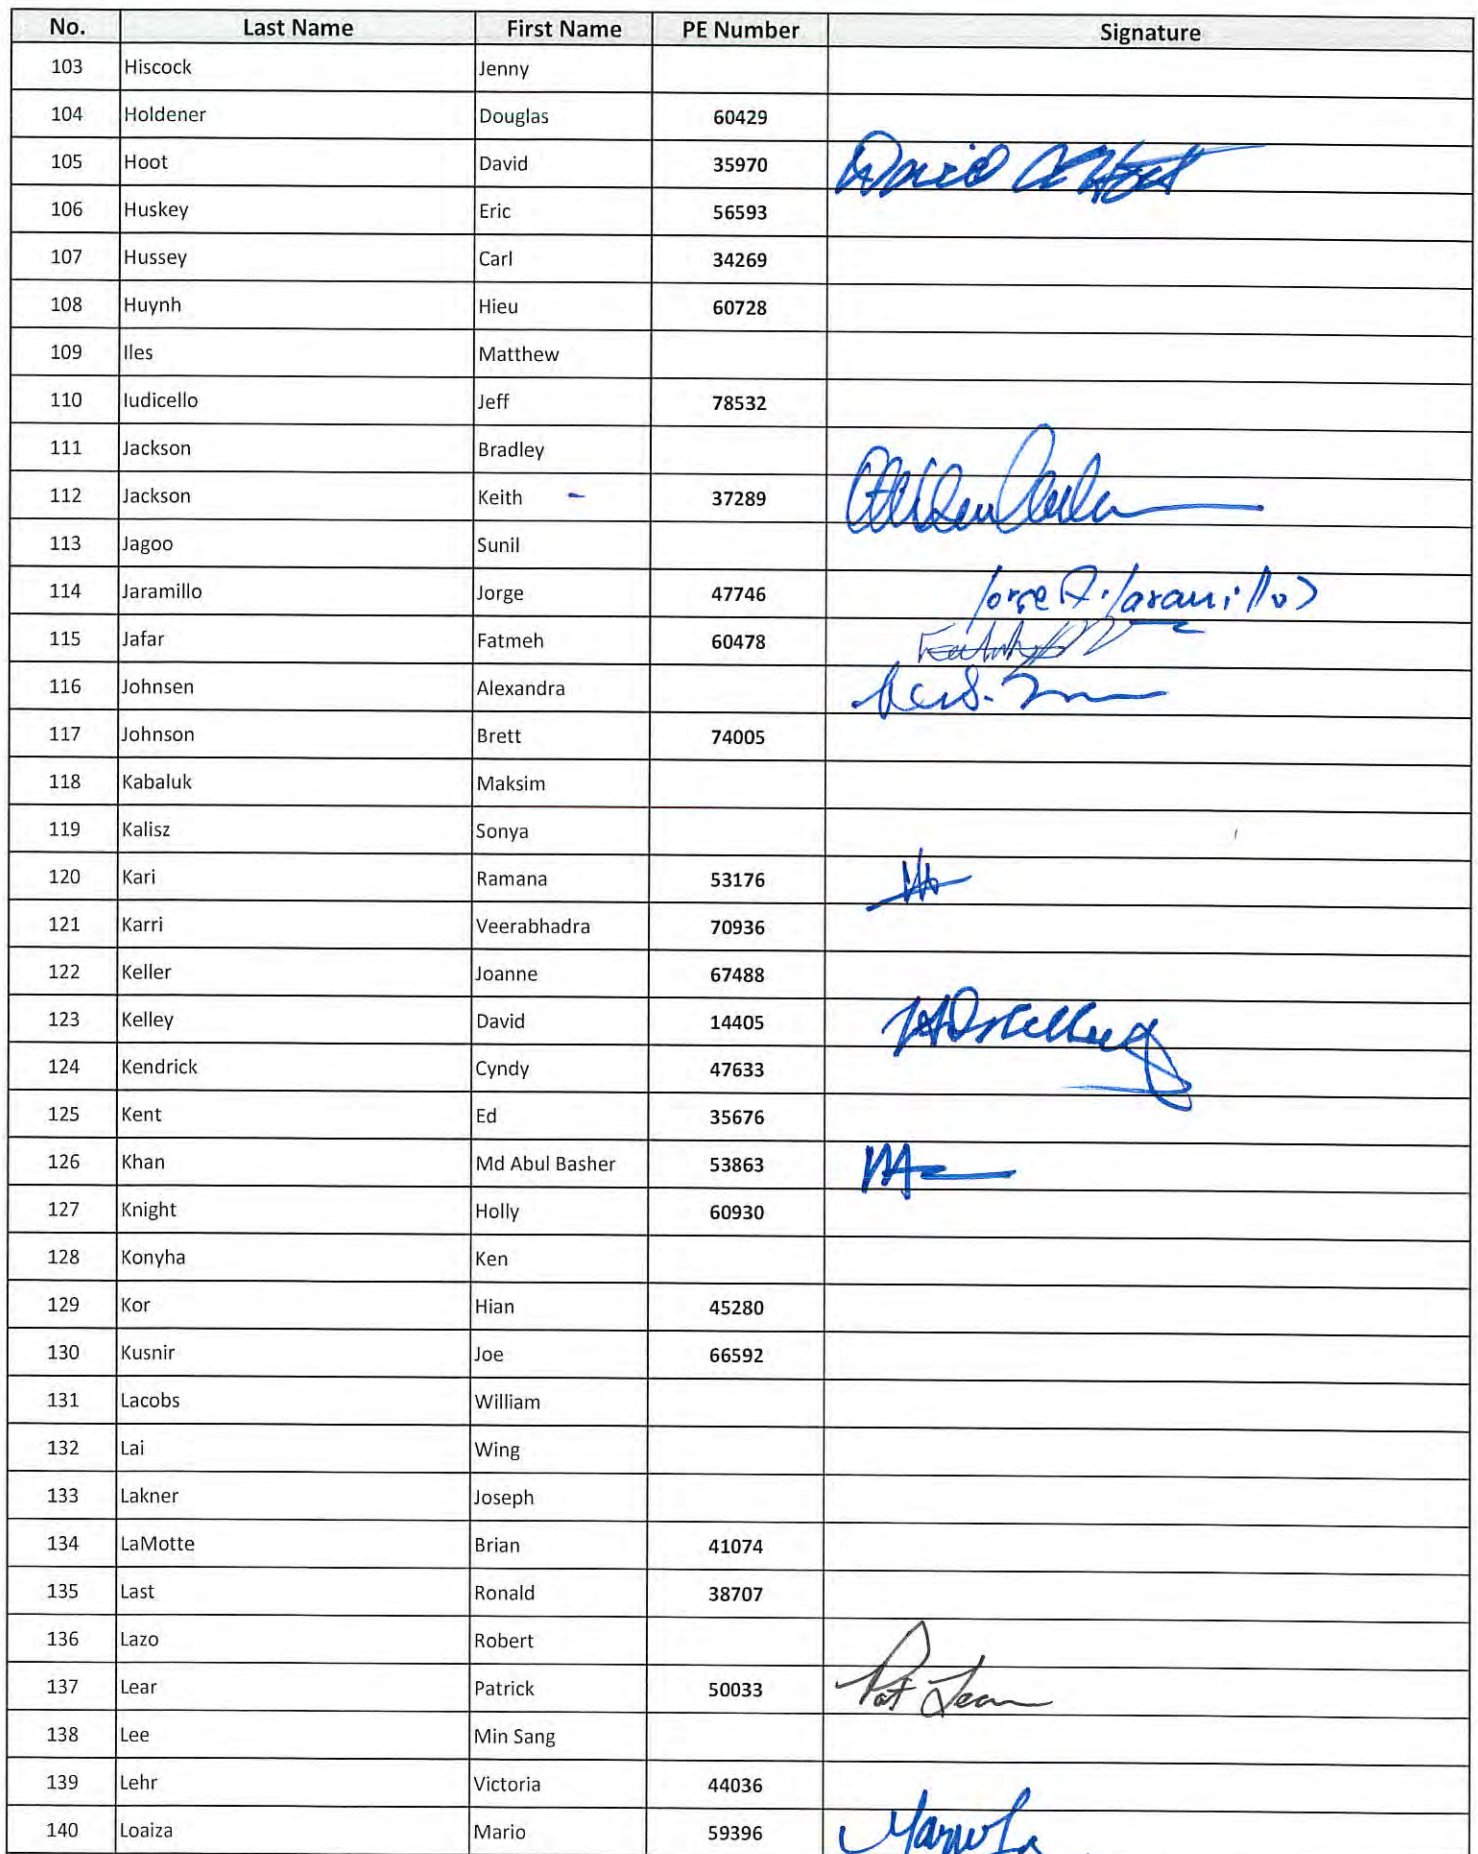 No. Last Name First Name PE Number Signature
103 Hiscock Jenny
104 Holdener Douglas 60429
105 Hoot David 35970 David A Hoot
106 Huskey Eric 56593
107 Hussey Carl 34269
108 Huynh Hieu 60728
109 Iles Matthew
110 Iudicello Jeff 78532
111 Jackson Bradley
112 Jackson Keith - 37289
113 Jagoo Sunil
114 Jaramillo Jorge 47746 Jorge A. Jaramillo
115 Jafar Fatmeh 60478
116 Johnsen Alexandra
117 Johnson Brett 74005
118 Kabaluk Maksim
119 Kalisz Sonya
120 Kari Ramana 53176
121 Karri Veerabhadra 70936
122 Keller Joanne 67488
123 Kelley David 14405
124 Kendrick Cyndy 47633
125 Kent Ed 35676
126 Khan Md Abul Basher 53863
127 Knight Holly 60930
128 Konyha Ken
129 Kor Hian 45280
130 Kusnir Joe 66592
131 Lacobs William
132 Lai Wing
133 Lakner Joseph
134 LaMotte Brian 41074
135 Last Ronald 38707
136 Lazo Robert
137 Lear Patrick 50033 Pat Lear
138 Lee Min Sang
139 Lehr Victoria 44036
140 Loaiza Mario 59396